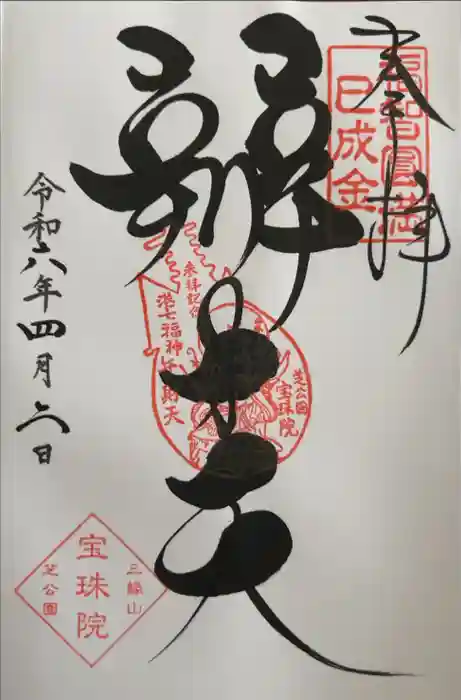 奉拝
福智円満
巳成金
辨才天
参拝記念
港七福神弁財天
芝公園
宝珠院
令和六年四月六日
三縁山
宝珠院
芝公園